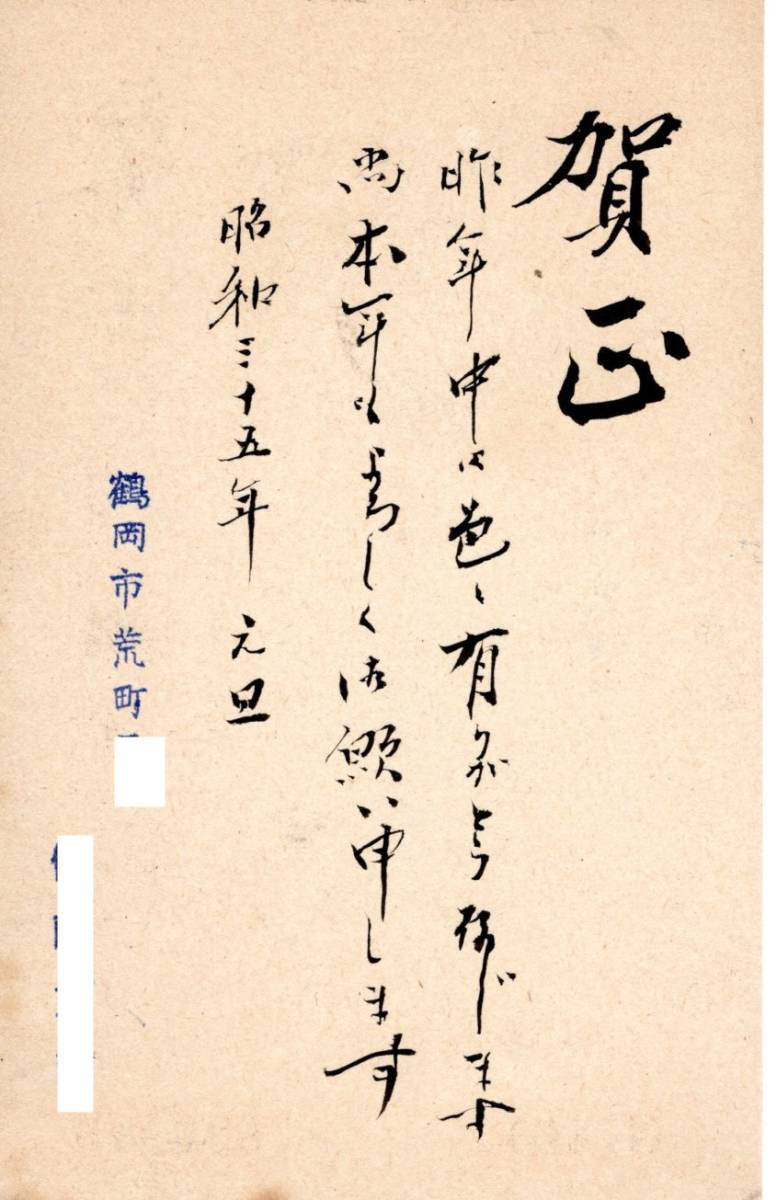 賀正
昨年中は色々有りがとう存じます
尚本年もよろしく御願い申します
昭和三十五年 元旦
鶴岡市荒町